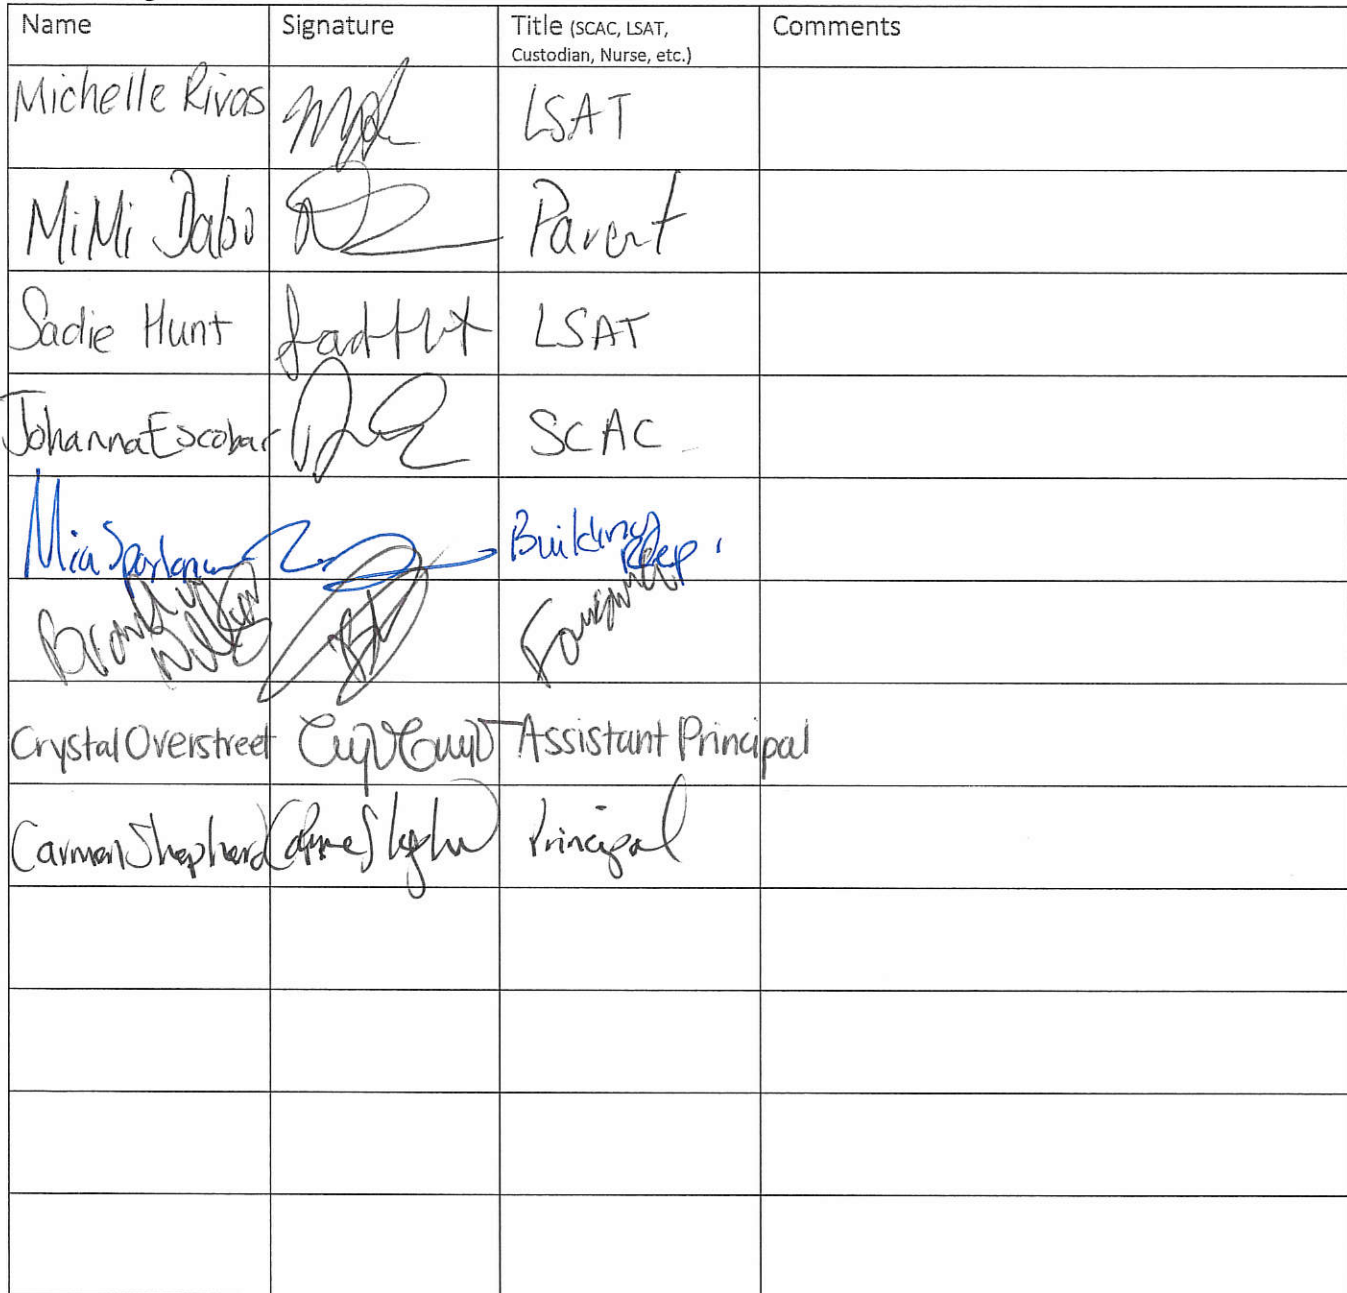 Name Signature Title (SCAC, LSAT, Comments
Custodian, Nurse, etc.)
Michelle Rivas LSAT
MiMi Dabo Parent
Sadie Hunt LSAT
Johanna Escobar SCAC
Mia Building
Rep.
Foreman
Crystal Overstreet Assistant Principal
Carmen Shepherd Principal